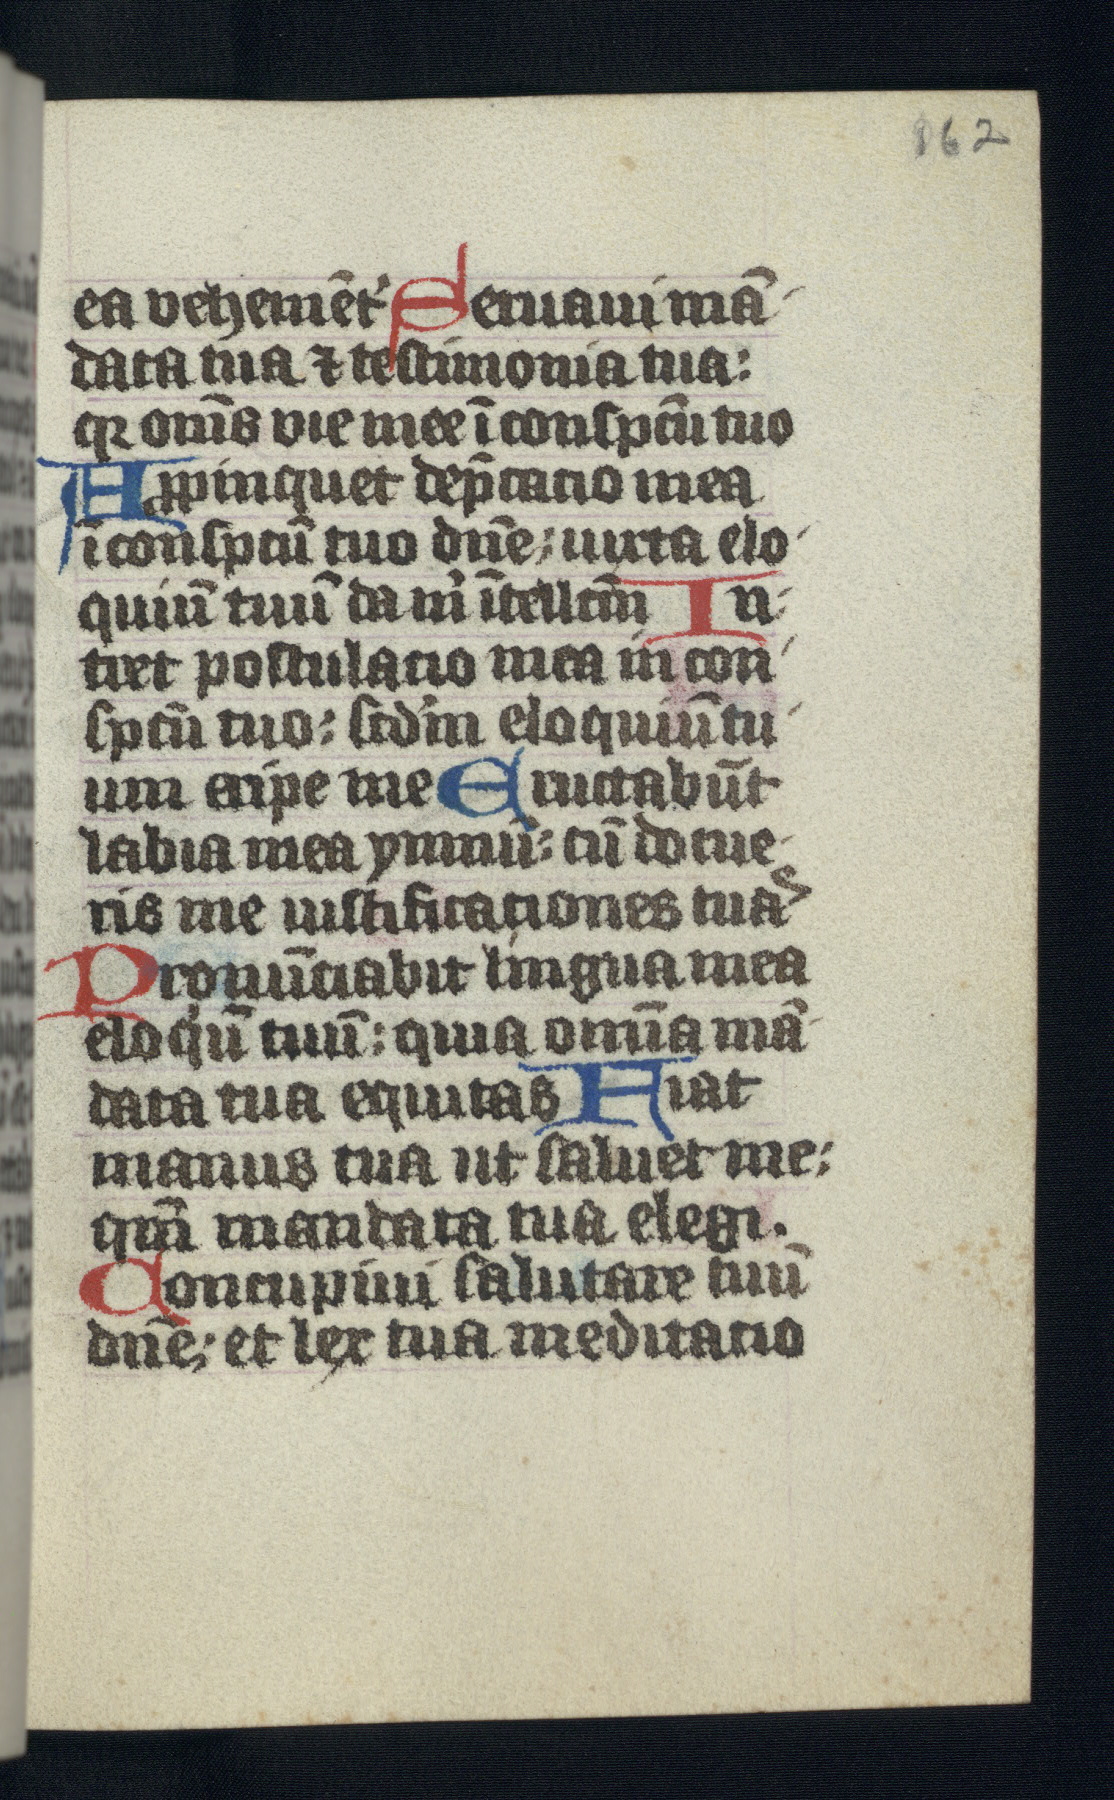 162
ea vehemēt᷑ Seruaui mā-
data tua ⁊ testimonia tua:
qꝛ om̄s vie mee ī conspc̄u tuo
Aꝓpinquet dep̄catio mea
ī conspc̄u tuo dn̄e; iuxta elo-
quiū tuū da m̓ ītellc̄m In-
tret postulatio mea in con-
spc̄u tuo: scd̓m eloquiū tu-
um eripe me Eructabūt
labia mea ymnū: cū docue-
ris me iustificationes tuas
Pronūciabit lingua mea
eloqͥū tuū: quia omīa mā-
data tua equitas Fiat
manus tua ut saluet me:
qm̄ mandata tua elegi.
Concupiui salutare tuū
dn̄e; et lex tua meditatio